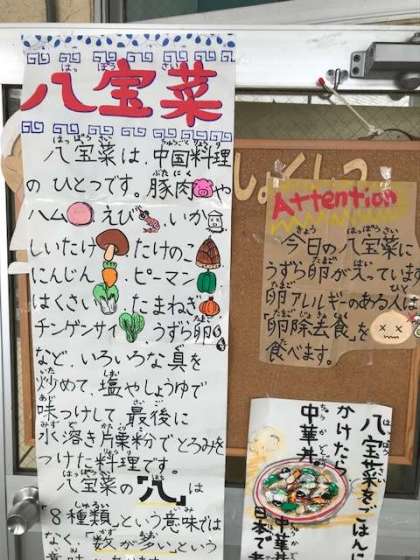 八宝菜
八宝菜は、中国料理
のひとつです。豚肉や
ハム、えび、いか、
しいたけ、たけのこ
にんじん、ピーマン
はくさい、たまねぎ
チンゲンサイ、うずら卵
など、いろいろな具を
炒めて、塩やしょうゆで
味つけして、最後に
水溶き片栗粉でとろみを
つけた料理です。
八宝菜の「八」は
「8種類」という意味では
なく、「数が多い」という
Attention
今日の八宝菜に
うずら卵が入っています
卵アレルギーのある人は
「卵除去食」を
食べます。
八宝菜をごはんに
かけたら
中華丼
中華
日本で